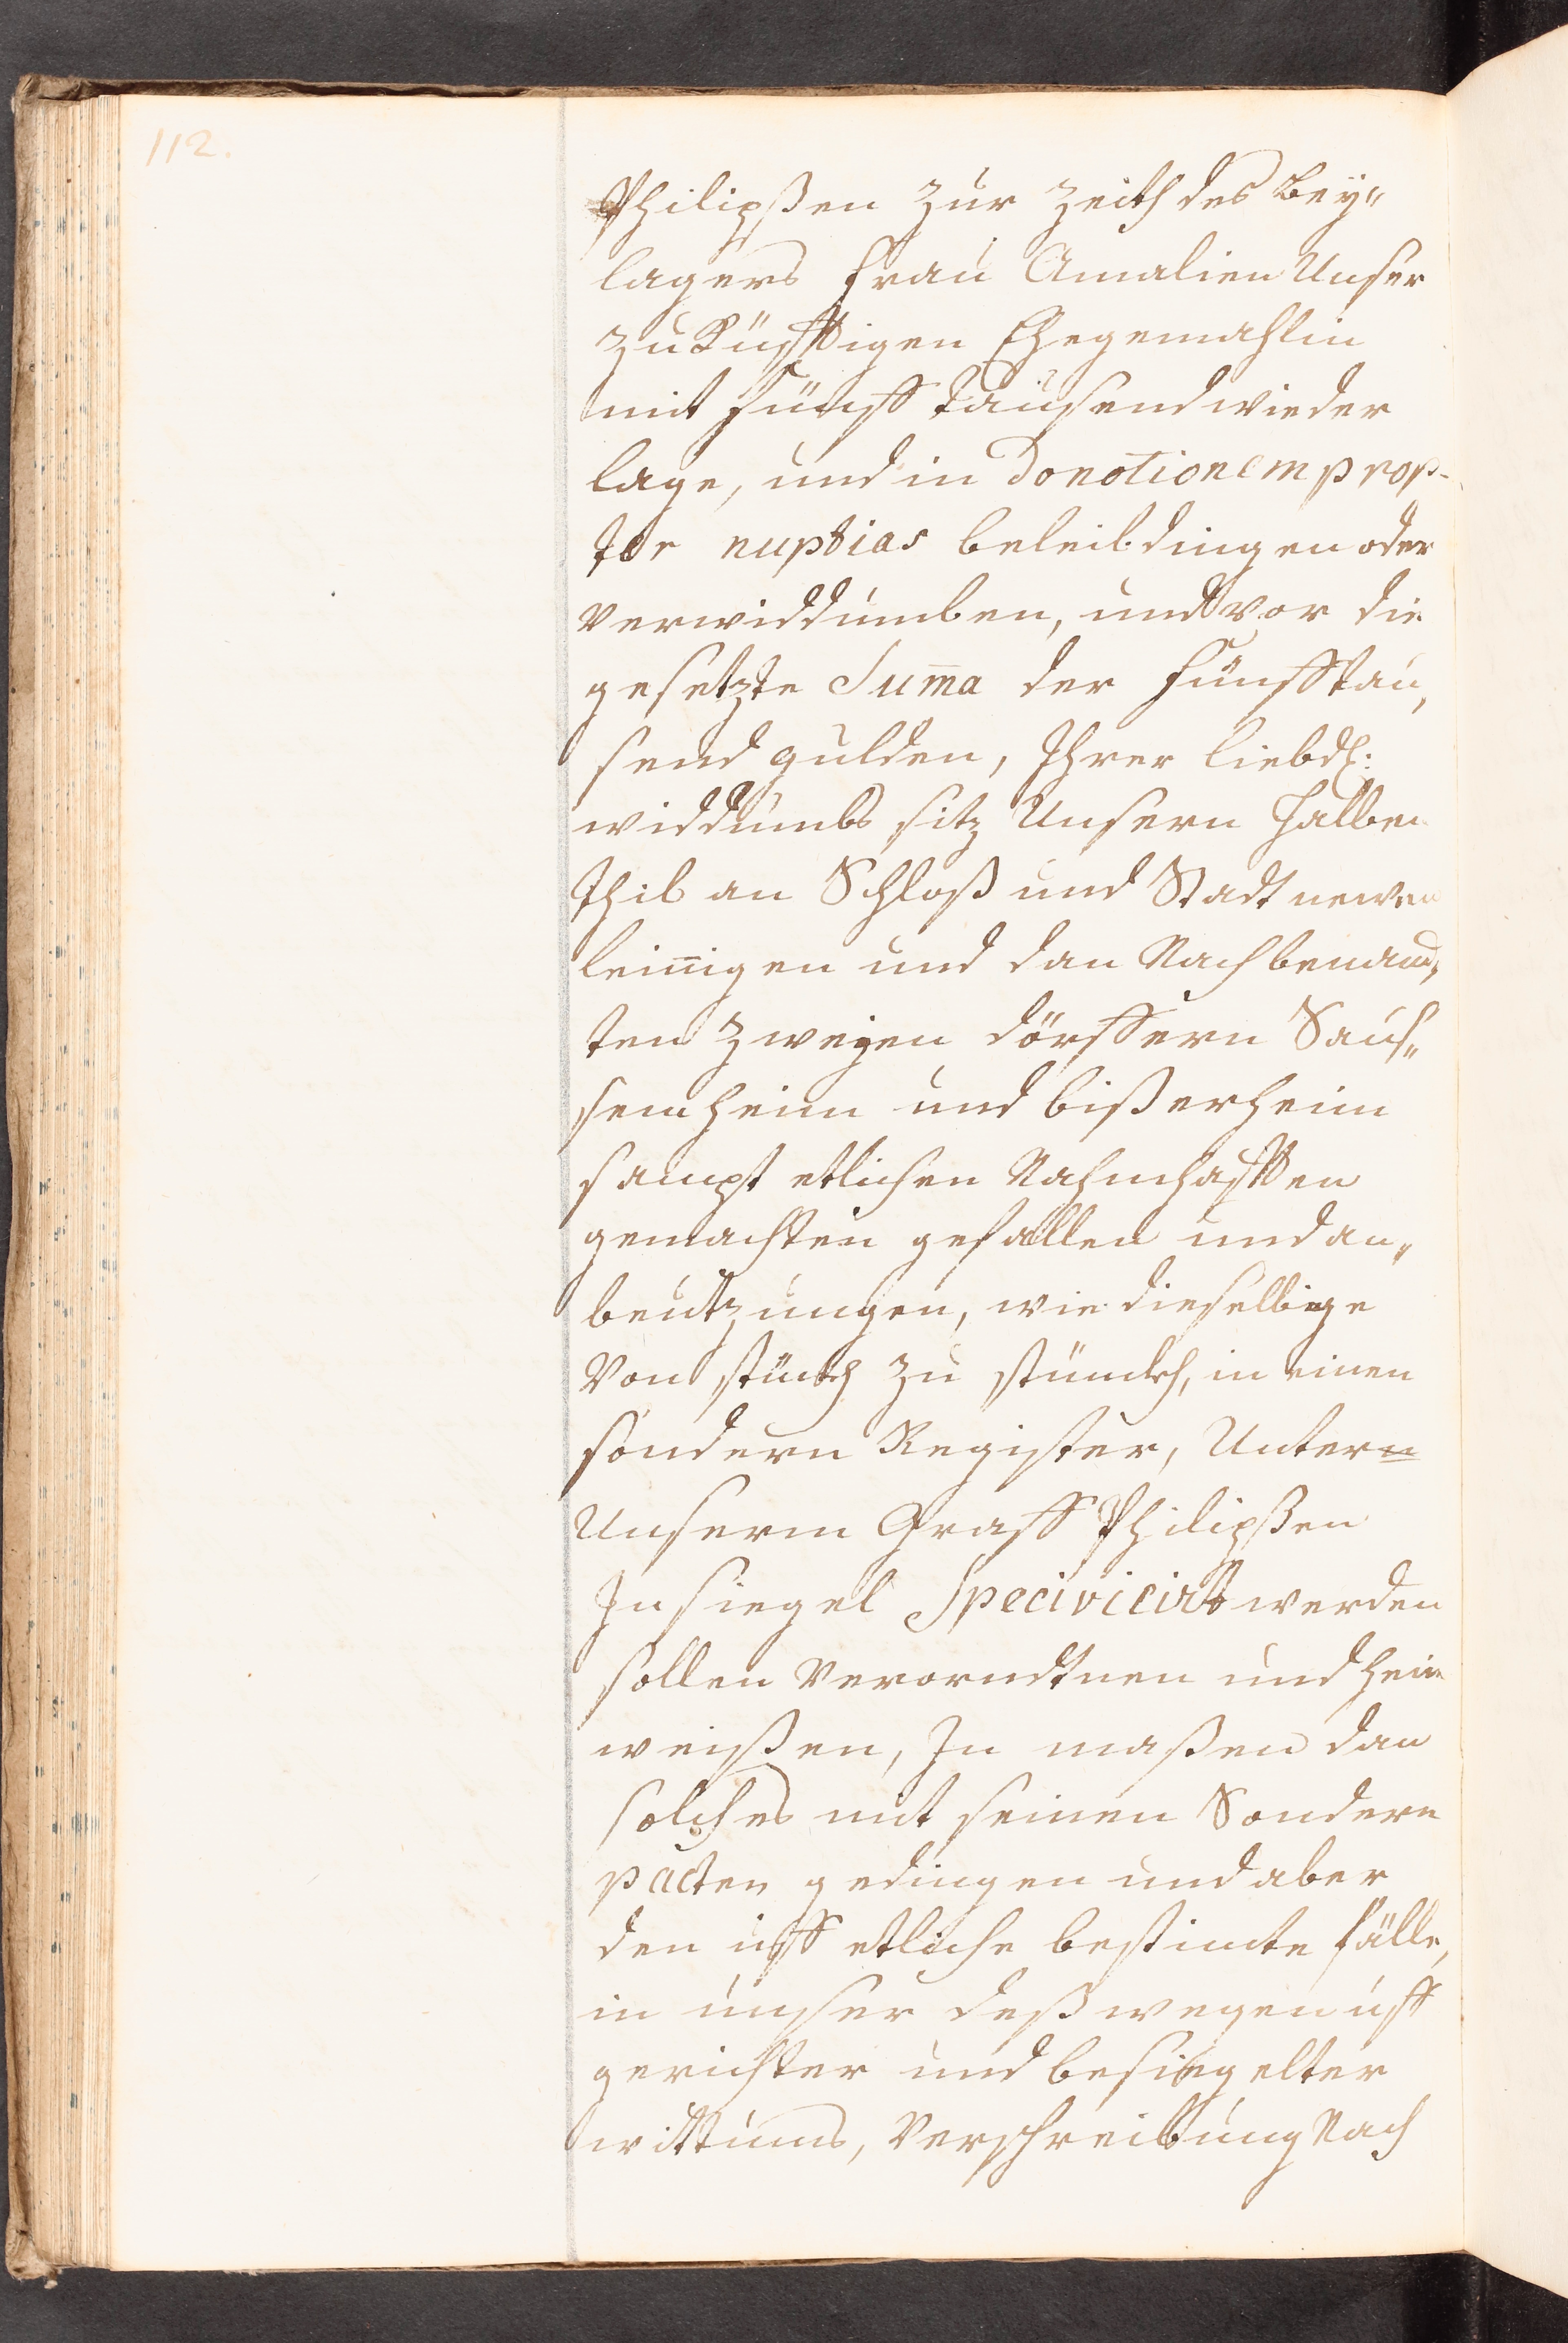 112.
Philipßen zur zeith des Beÿ„
lagers Frau Amalien Unser
zuKünfftigen Ehegemahlin
mit Fünff Tausend wieder
lage, und in Donotionem prop-
ter nuptias beleibdingen oder
verwiddumben, und vor die
gesetzte Sum̄a der Fünfftau„
send gulden, Ihrer Liebd:
widdumbs sitz Unsern halben
Theil an Schloß und Stadt newen
leinigen und dan Nachbenand„
ten zweÿen dörffern Sauß„
senheim und bißerheim
sampt etlichen Nahmhafften
gemachten gefällen und an„
beutzungen, wie dieselbige
Von stückh zu stückh, in einen
sondern Register, Untern
Unserm Graff Philipßen
Insiegel Specivicirt werden
sollen verorndtnen und hein
weißen, In maßen dan
solches mit seinen Sondern
pacten gedingen und aber
den uff etliche bestimte fälle,
in unser deßwegen uff
gerichter und besiegelter
wittums, Verschreibung Nach